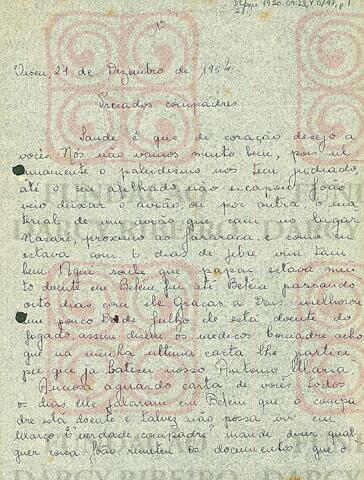 Viseu, 21 de Dezembro de 1957
Presados compadres
Saude é que de coração desejo a
vocês. Nós não vamos muito bem, pois ul
timamente o paludismo nos tem judiado,
até o seu afilhado não escapou. João
veio deixar o avião, ou por outra, o ma
terial de um avião que caiu no lugar
Nazaré, proximo ao Jararaca, e como eu
estava com 6 dias de febre vim tam
bem. Aqui soube que papai estava mui
to doente em Belem, fui até Belem passando
oito dias com ele. Graças a Deus melhorou
um pouco. Desde julho ele está doente do
figado, assim dizem os medicos. Comadre acho
que na minha ultima carta lhe partici
pei que ja batisei nosso Antonio Maria.
Anciosa aguardo carta de vocês todos
os dias, me falaram em Belem que o compa
dre está doente e talvez não possa vir em
Março. É verdade compadre? mande dizer qual
quer coisa. João remeteu os documentos que o
DARCY RIBEIRO